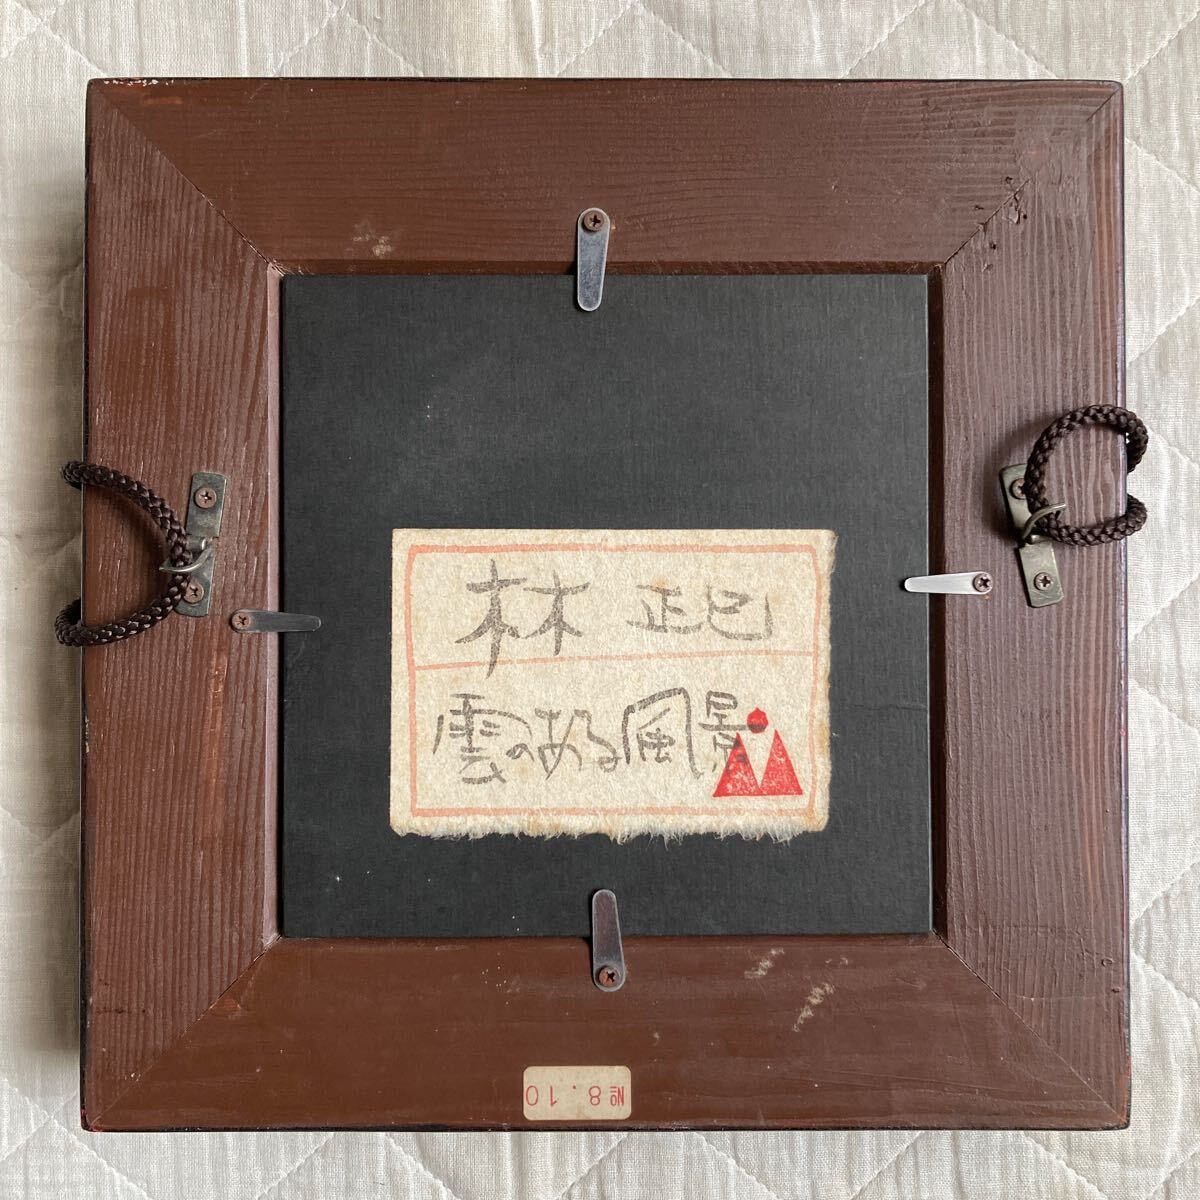 林 正己
雲のある風景
№8.10